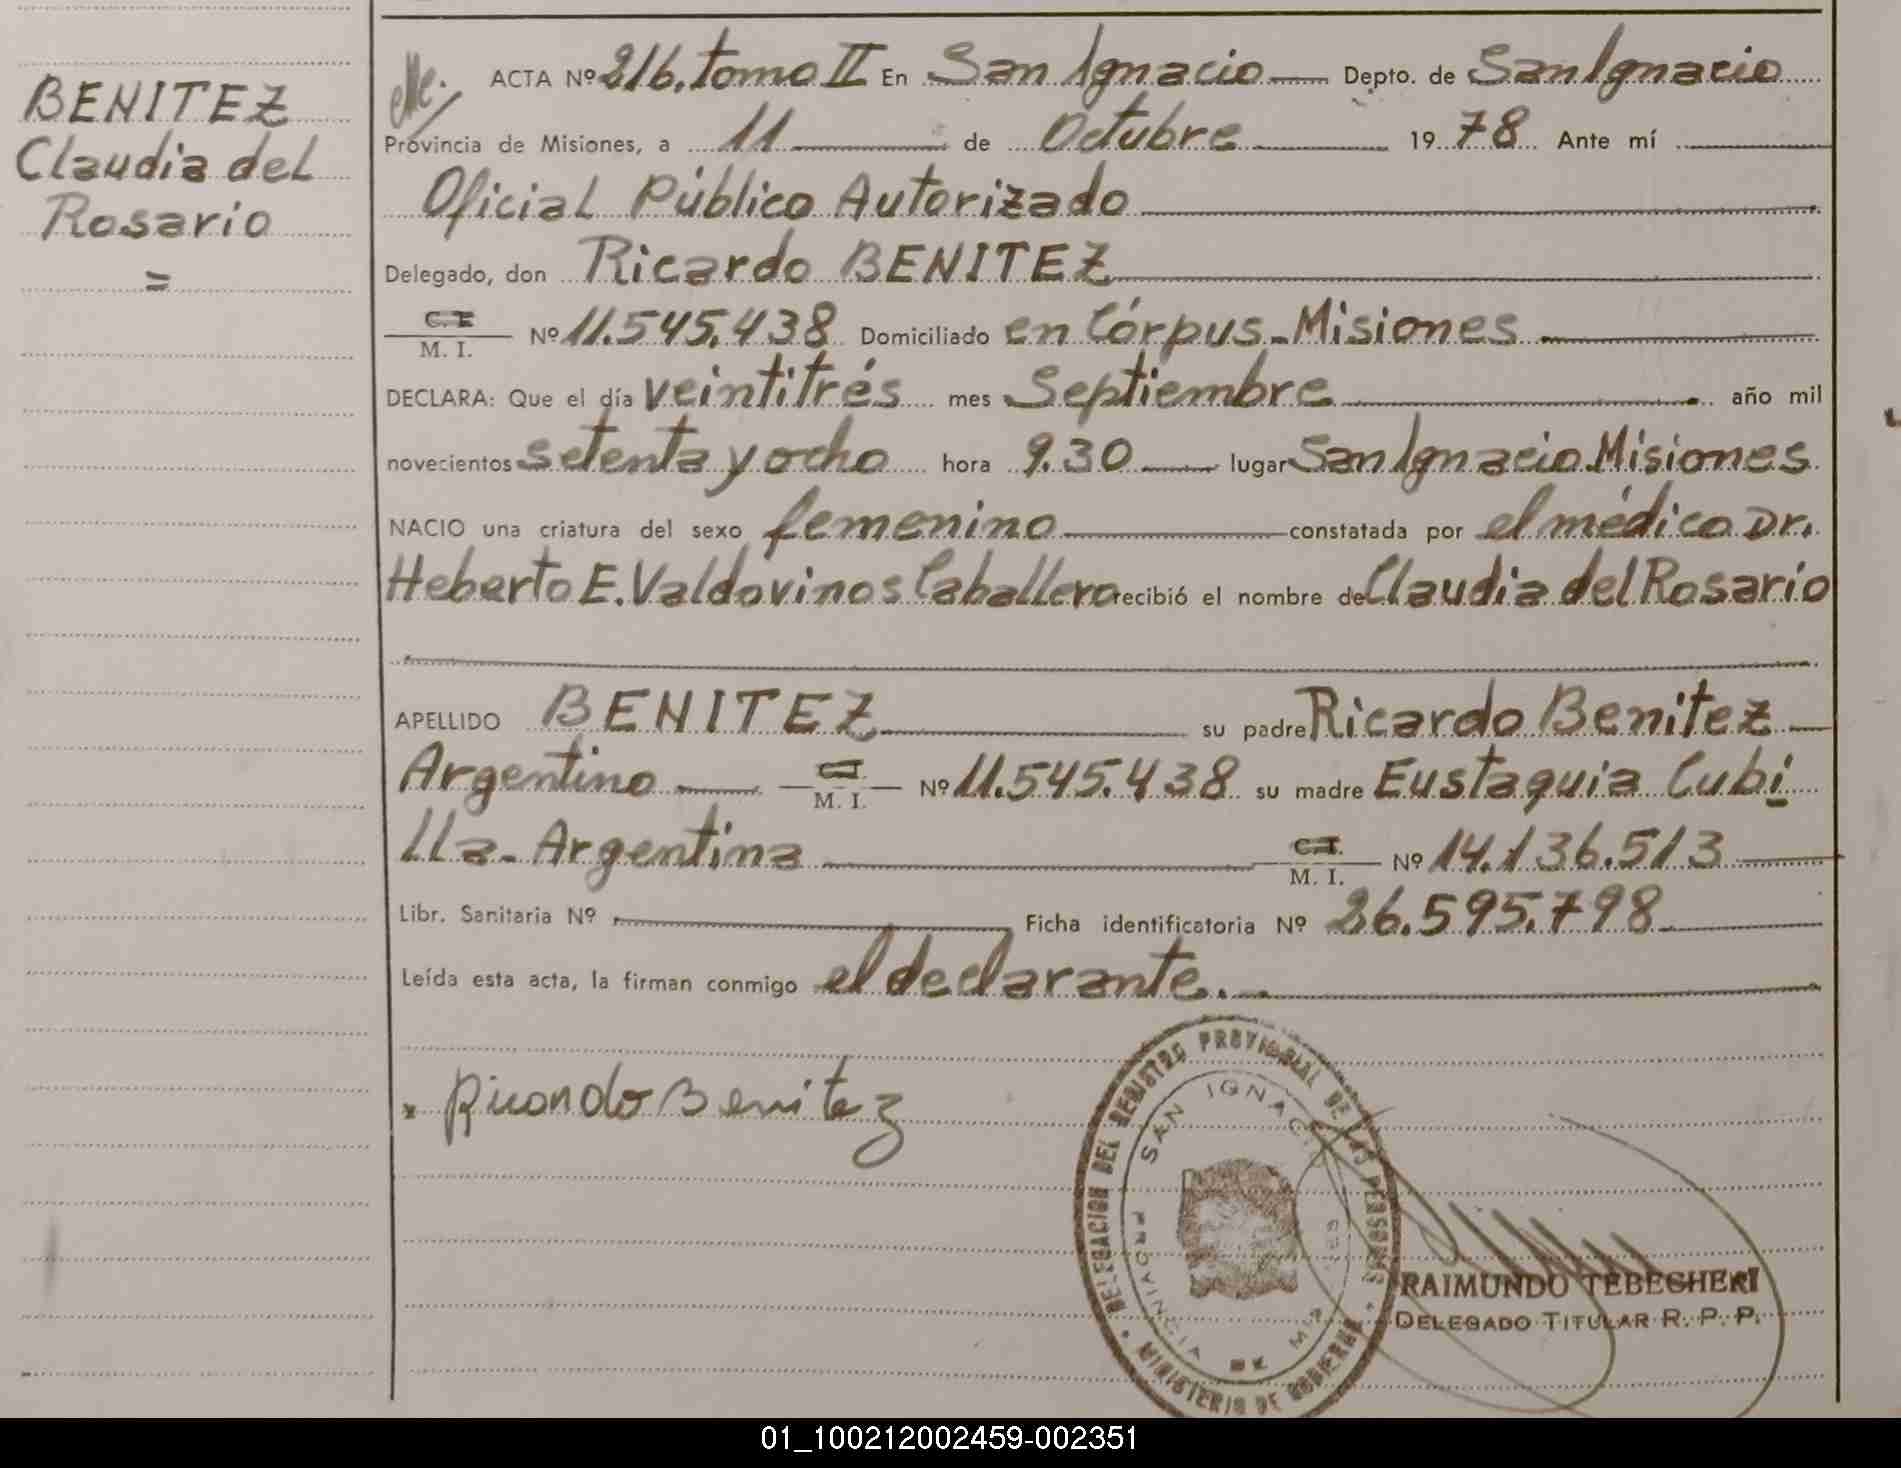 BENITEZ
Claudia del
Rosario
=
ACTA Nº 216. tomo II En San Ignacio Depto. de San Ignacio
Provincia de Misiones, a 11 de Octubre 1978 Ante mí
Oficial Público Autorizado
Delegado, don Ricardo BENITEZ
C. I.
M. I. Nº 11.545.438 Domiciliado en Córpus - Misiones
DECLARA: Que el día veintitrés mes Septiembre año mil
novecientos setenta y ocho hora 9.30 lugar San Ignacio Misiones
NACIO una criatura del sexo femenino constatada por el médico Dr.
Heberto E. Valdovinos Caballero recibió el nombre de Claudia del Rosario
APELLIDO BENITEZ su padre Ricardo Benitez
Argentino C. I. M. I. Nº 11.545.438 su madre Eustaquia Cubi
lla - Argentina C. I. M. I. Nº 14.136.513
Libr. Sanitaria Nº Ficha identificatoria Nº 26.595.798
Leída esta acta, la firman conmigo el declarante. -
x Ricardo Benitez
DELEGACION DEL REGISTRO PROVINCIAL DE LAS PERSONAS
SAN IGNACIO
PROVINCIA DE MIS
MINISTERIO DE GOBIERNO
RAIMUNDO TEBEGHERI
DELEGADO TITULAR R. P. P.
01_100212002459-002351